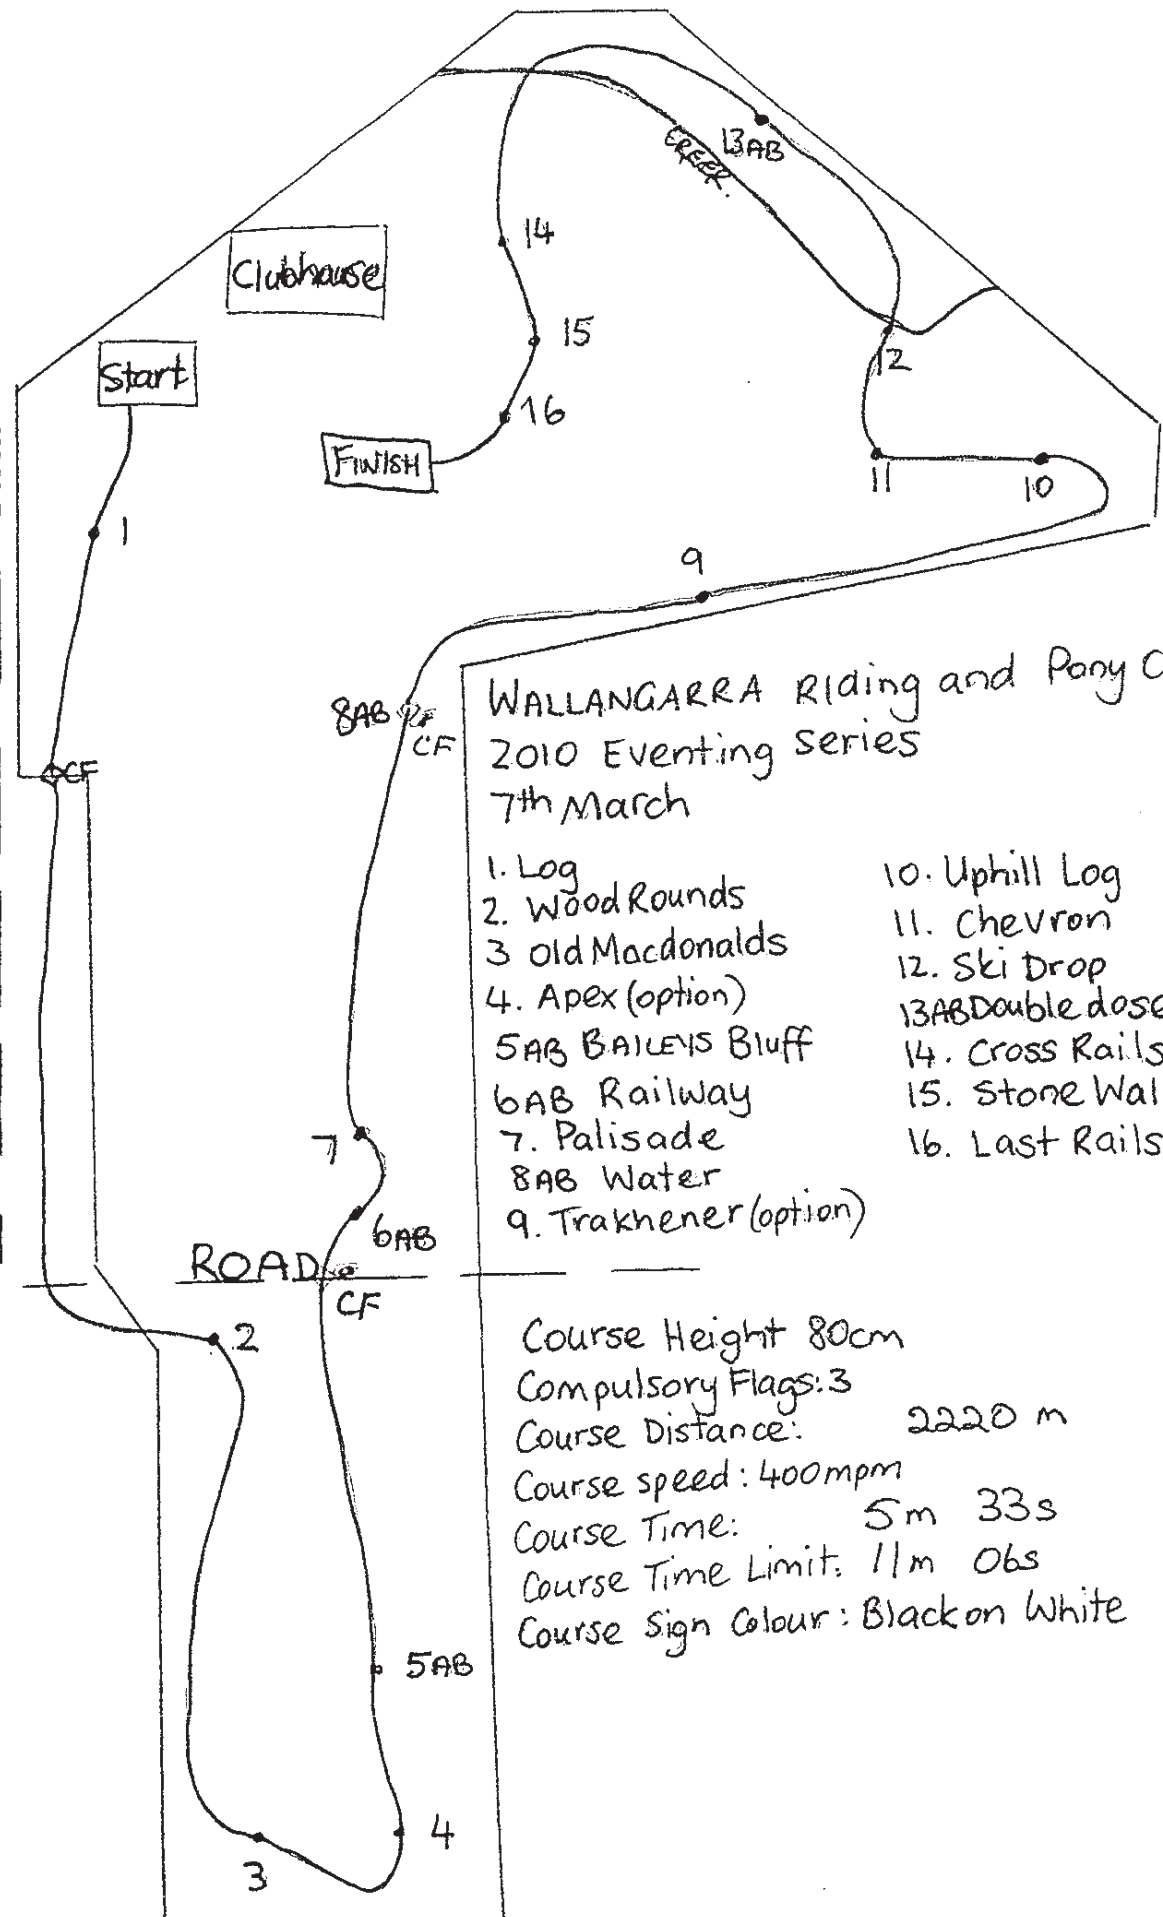 CREEK.
13AB
14
Clubhouse
15
Start
12
16
FINISH
11
10
1
9
8AB
CF
CF
WALLANGARRA Riding and Pony C
2010 Eventing Series
7th March
1. Log
2. Wood Rounds
3 Old Macdonalds
4. Apex (option)
5AB BAILEYS Bluff
6AB Railway
7. Palisade
8AB Water
9. Trakhener (option)
10. Uphill Log
11. Chevron
12. Ski Drop
13AB Double dose
14. Cross Rails
15. Stone Wal
16. Last Rails
7
6AB
ROAD
CF
2
Course Height 80cm
Compulsory Flags: 3
Course Distance: 2220 m
Course speed: 400mpm
Course Time: 5m 33s
Course Time Limit: 11m 06s
Course Sign Colour: Black on White
5AB
4
3